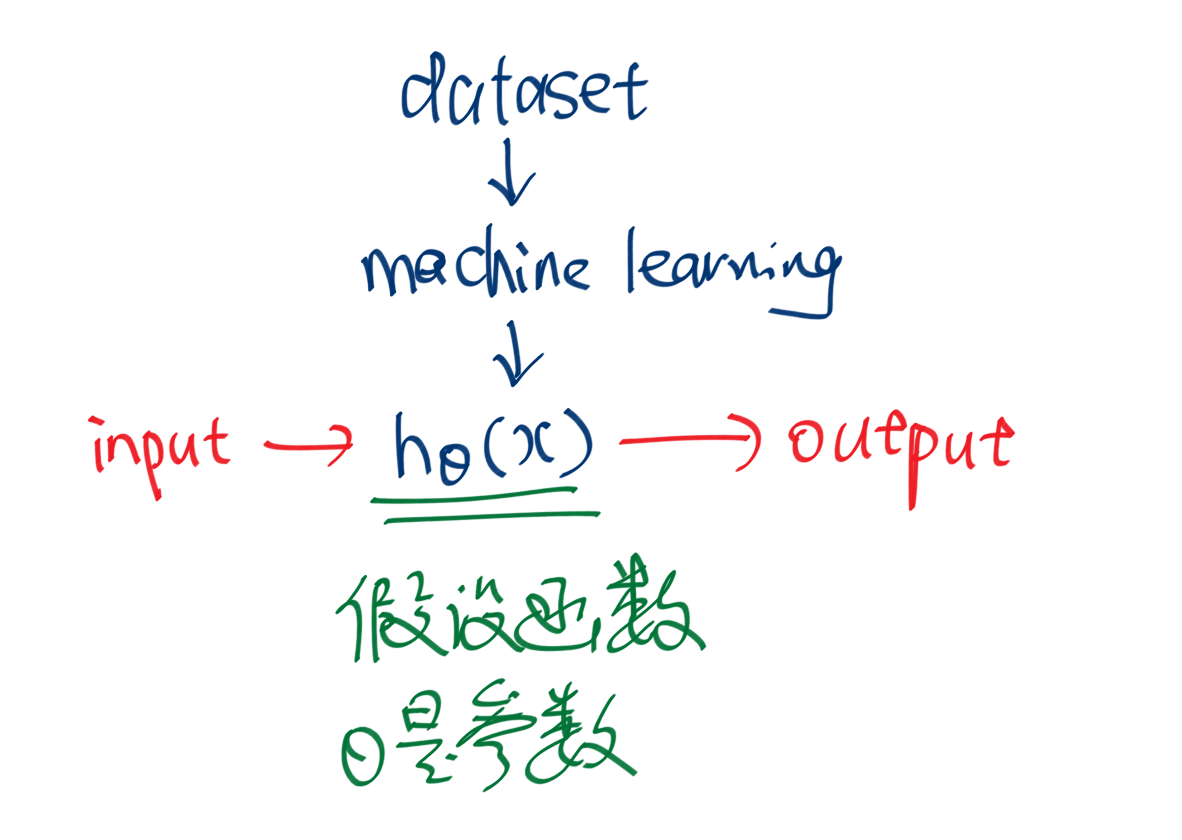 dataset
↓
machine learning
↓
input → hθ(x) → output
假设函数
θ是参数